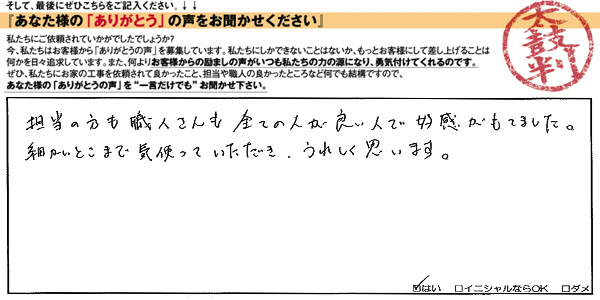 そして、最後にぜひこちらをご記入ください。↓↓
『あなた様の「ありがとう」の声をお聞かせください』
太鼓判
私たちにご依頼されていかがでしたでしょうか?
今、私たちはお客様から「ありがとうの声」を募集しています。私たちにしかできないことはないか、もっとお客様にして差し上げることは
何かを日々追求しています。また、何よりお客様からの励ましの声がいつも私たちの力の源になり、勇気付けてくれるのです。
ぜひ、私たちにお家の工事を依頼されて良かったこと、担当や職人の良かったところなど何でも結構ですので、
あなた様の「ありがとうの声」を“一言だけでも”お聞かせ下さい。
担当の方も職人さんも全ての人が良い人で好感がもてました。
細かいとこまで気使っていただき、うれしく思います。
☑はい □イニシャルならOK □ダメ